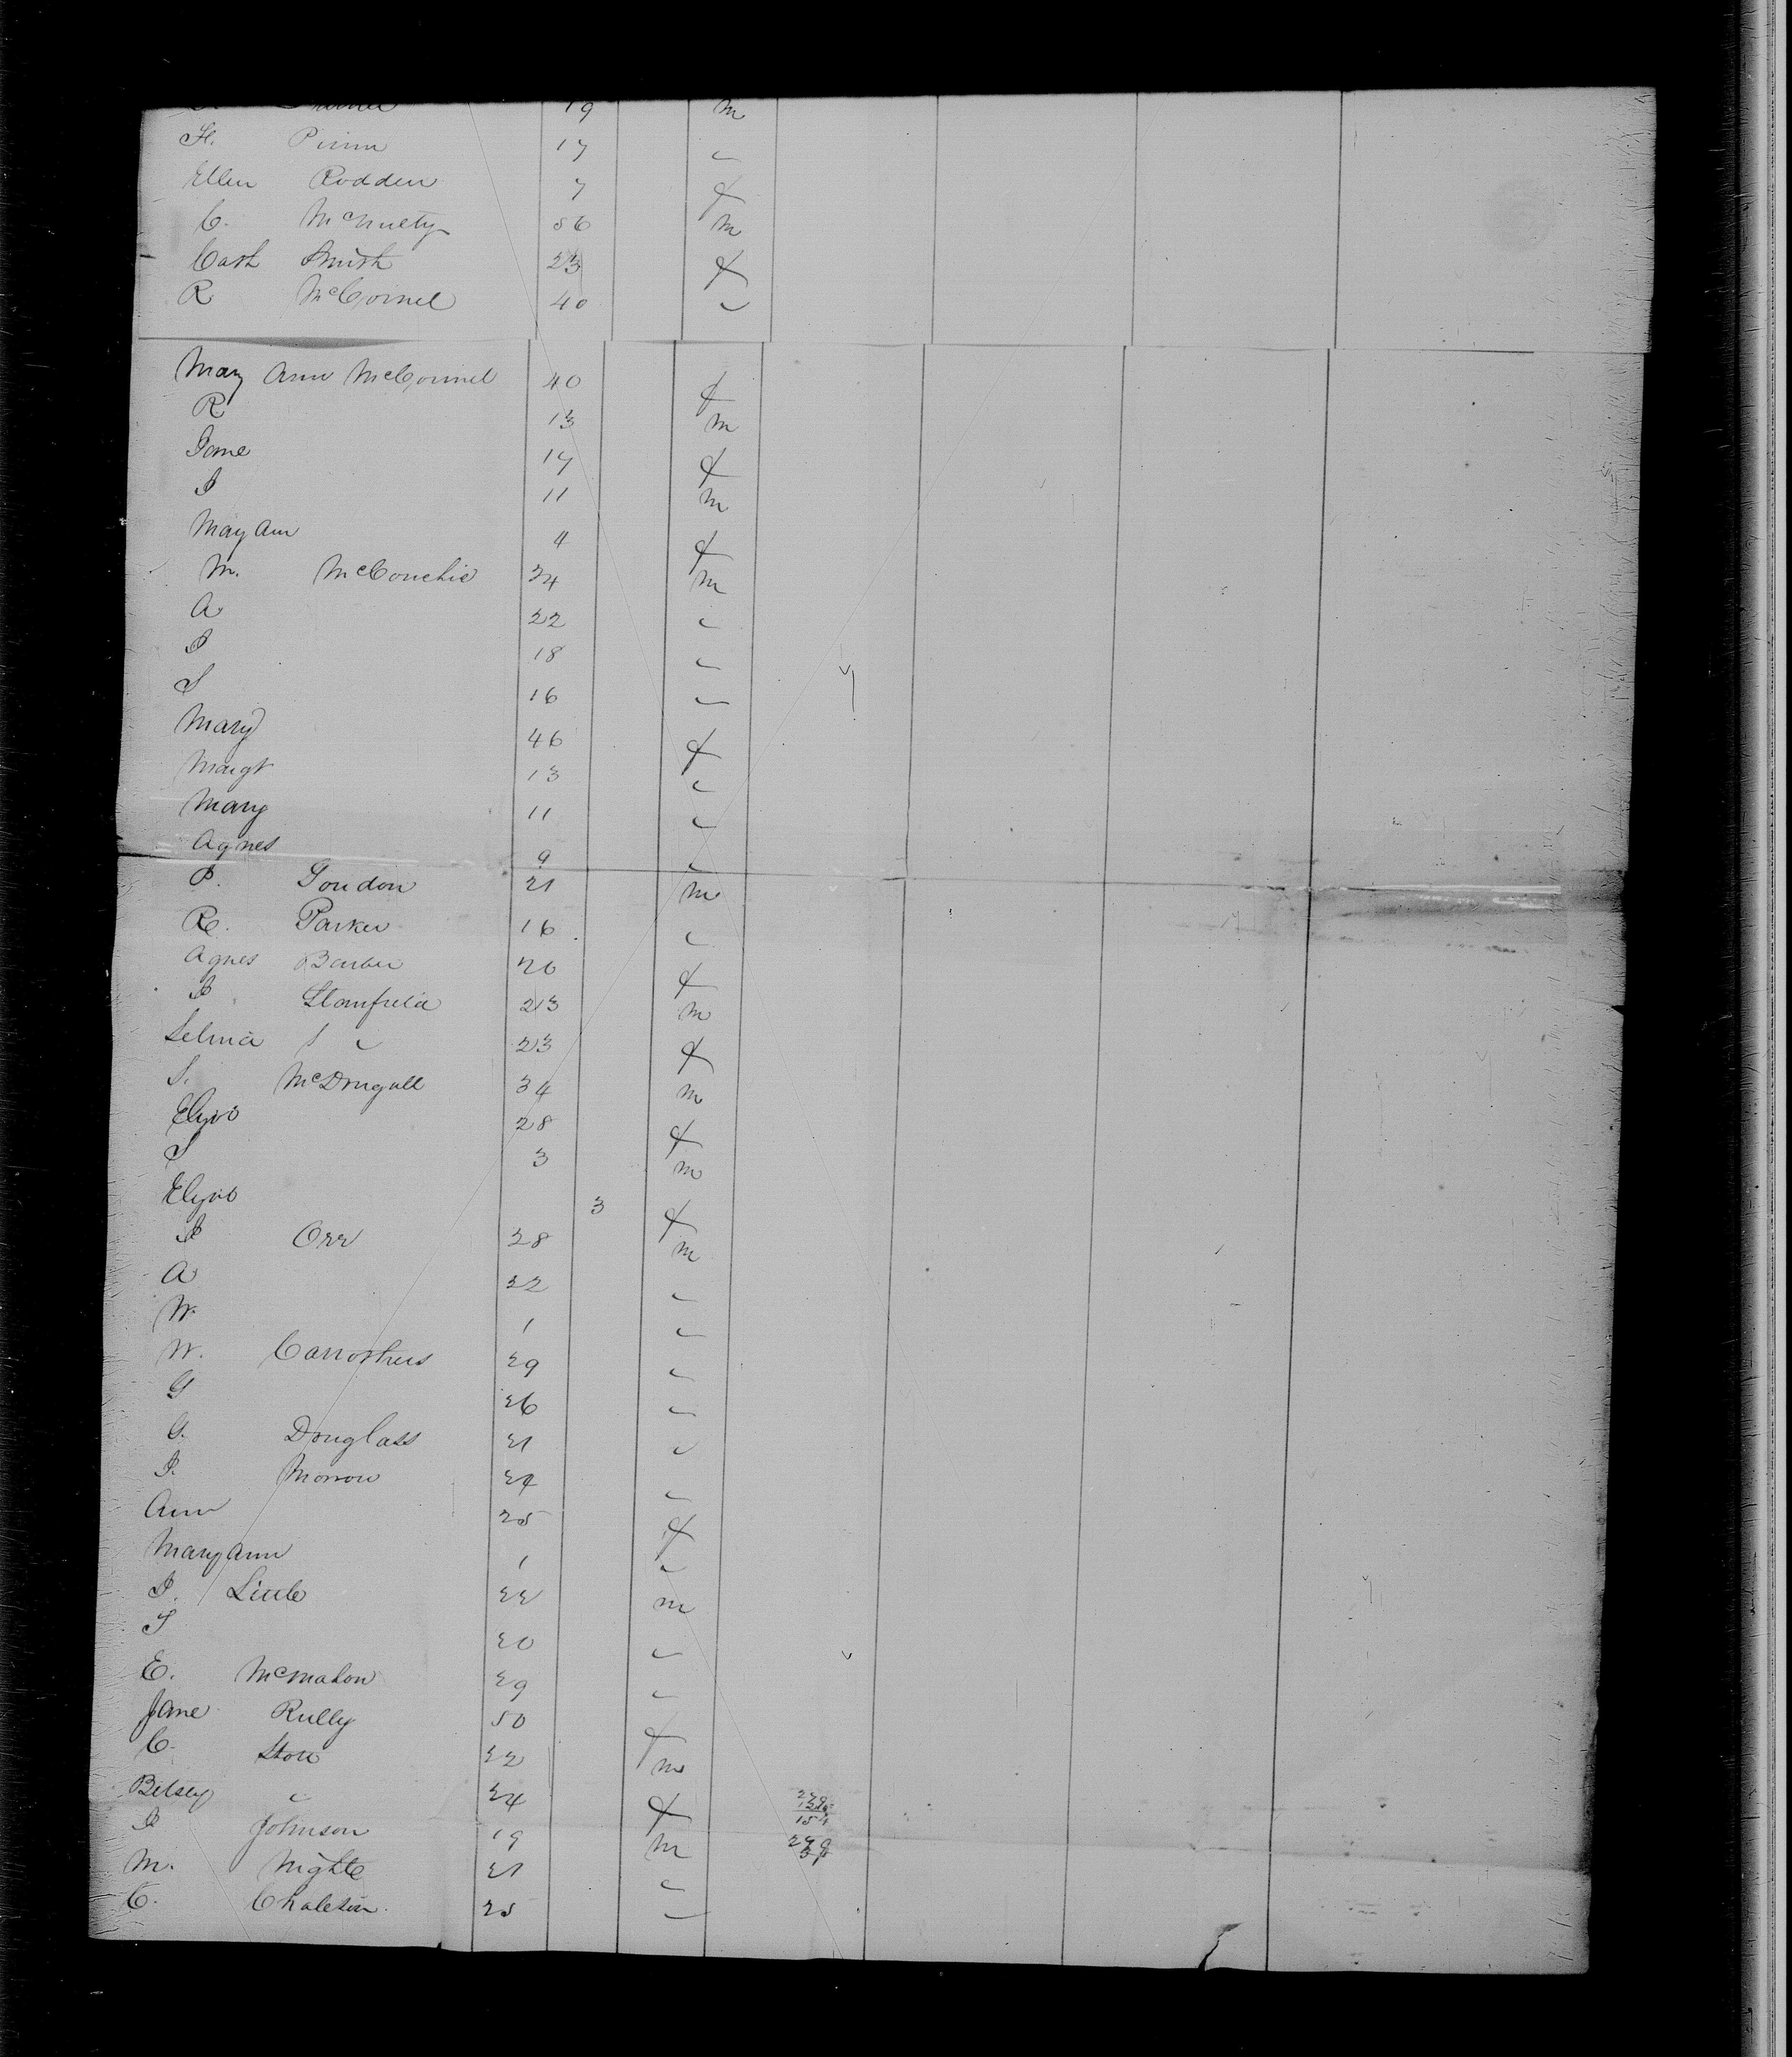 19 m
H. Pinn 17 "
Ellen Rodden 7 f
C. McNulty 56 m
Cath Smith 23 f
R McConnel 40 "
Mary Ann McConnel 40 f
R 13 m
Jane 17 f
J 11 m
Mary Ann 4 f
M. McConchie 24 m
A 22 "
J 18 "
S 16 "
Mary 46 f
Margt 13 "
Mary 11 "
Agnes 9 "
J. Goudon 21 m
R. Parker 16 "
Agnes Barber 20 f
J Stanfield 23 m
Selina " 23 f
S. McDougall 34 m
Eliza 28 f
S 3 m
Eliza 3 f
J Orr 28 m
A 22 "
W. 1 "
W. Carrothers 29 "
G 26 "
G. Douglass 21 "
J. Morrow 24 "
Ann 25 f
Mary Ann 1 "
J. Little 22 m
S 20 "
E. McMahon 29 "
Jane Rully 50 f
C. Storr 22 m
Betsey " 24 f
J Johnson 19 m
M. Night 21 "
C. 25 "